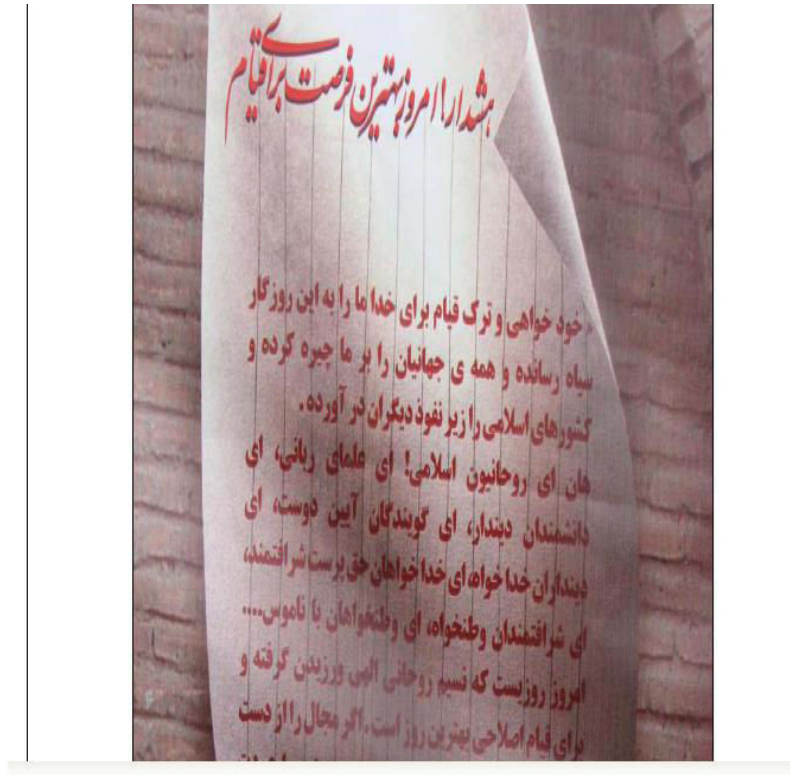 هشدار! امروز بهترین فرصت برای قیام
« خود خواهی و ترک قیام برای خدا ما را به این روزگار
سیاه رسانده و همه ی جهانیان را بر ما چیره کرده و
کشورهای اسلامی را زیر نفوذ دیگران در آورده .
هان ای روحانیون اسلامی! ای علمای ربانی، ای
دانشمندان دیندار، ای گویندگان آیین دوست، ای
دینداران خدا خواه، ای خدا خواهان حق پرست شرافتمند،
ای شرافتمندان وطنخواه، ای وطنخواهان با ناموس....
امروز روزیست که نسیم روحانی الهی ورزیدن گرفته و
برای قیام اصلاحی بهترین روز است . اگر مجال را از دست